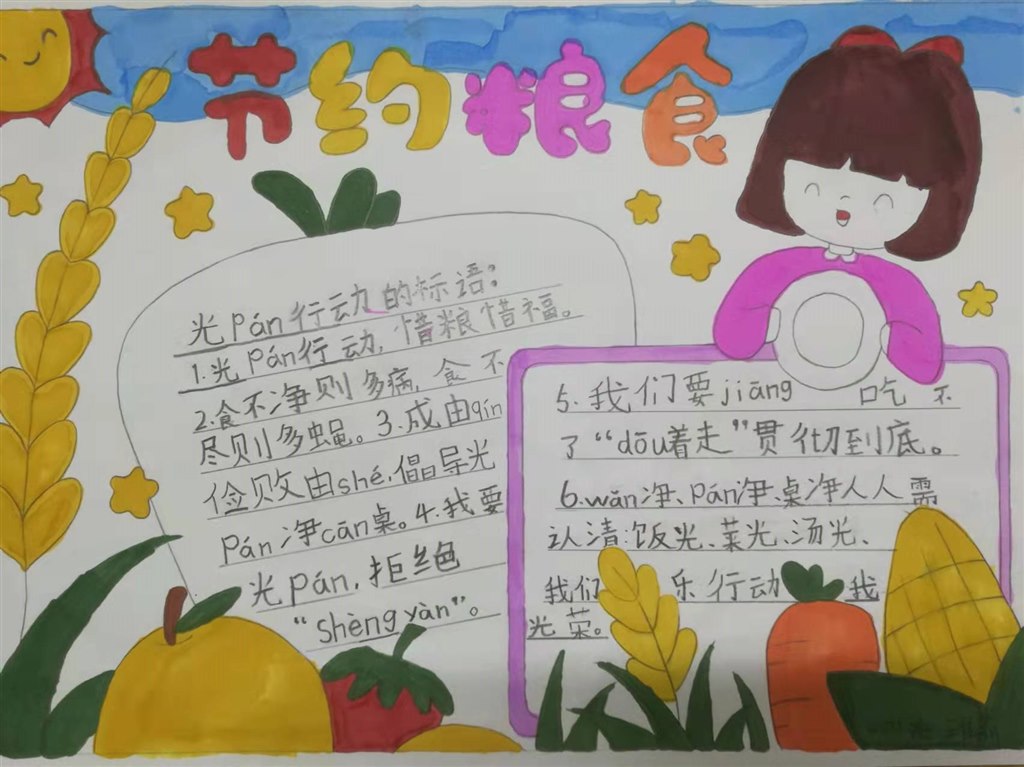 节约粮食
光pán行动的标语:
1.光pán行动,惜粮惜福。
2.食不净则多病,食不
尽则多蝇。3.成由qín
俭败由shé,倡导光
pán净cān桌。4.我要
光pán,拒绝
“shèng yàn”。
5.我们要jiāng 口吃不
了“dōu着走”贯彻到底。
6.wǎn净、pán净、桌净人人需
认清:饭光、菜光、汤光、
我们 乐行动 我
光荣。